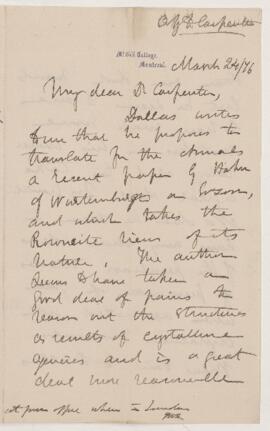 Dr Carpenter
McGill College,
Montreal.
March 24/76
My dear Dr Carpenter,
Dallas writes
that he proposes to
translate for the Annals
a recent paper by Hahn
of Wurtemburg on Eozoon,
and which takes the
Rowneite view of its
nature. The author
seems to have taken a
good deal of pains to
reason out the structures
as results of crystalline
agencies and is a great
deal more reasonable
when in London